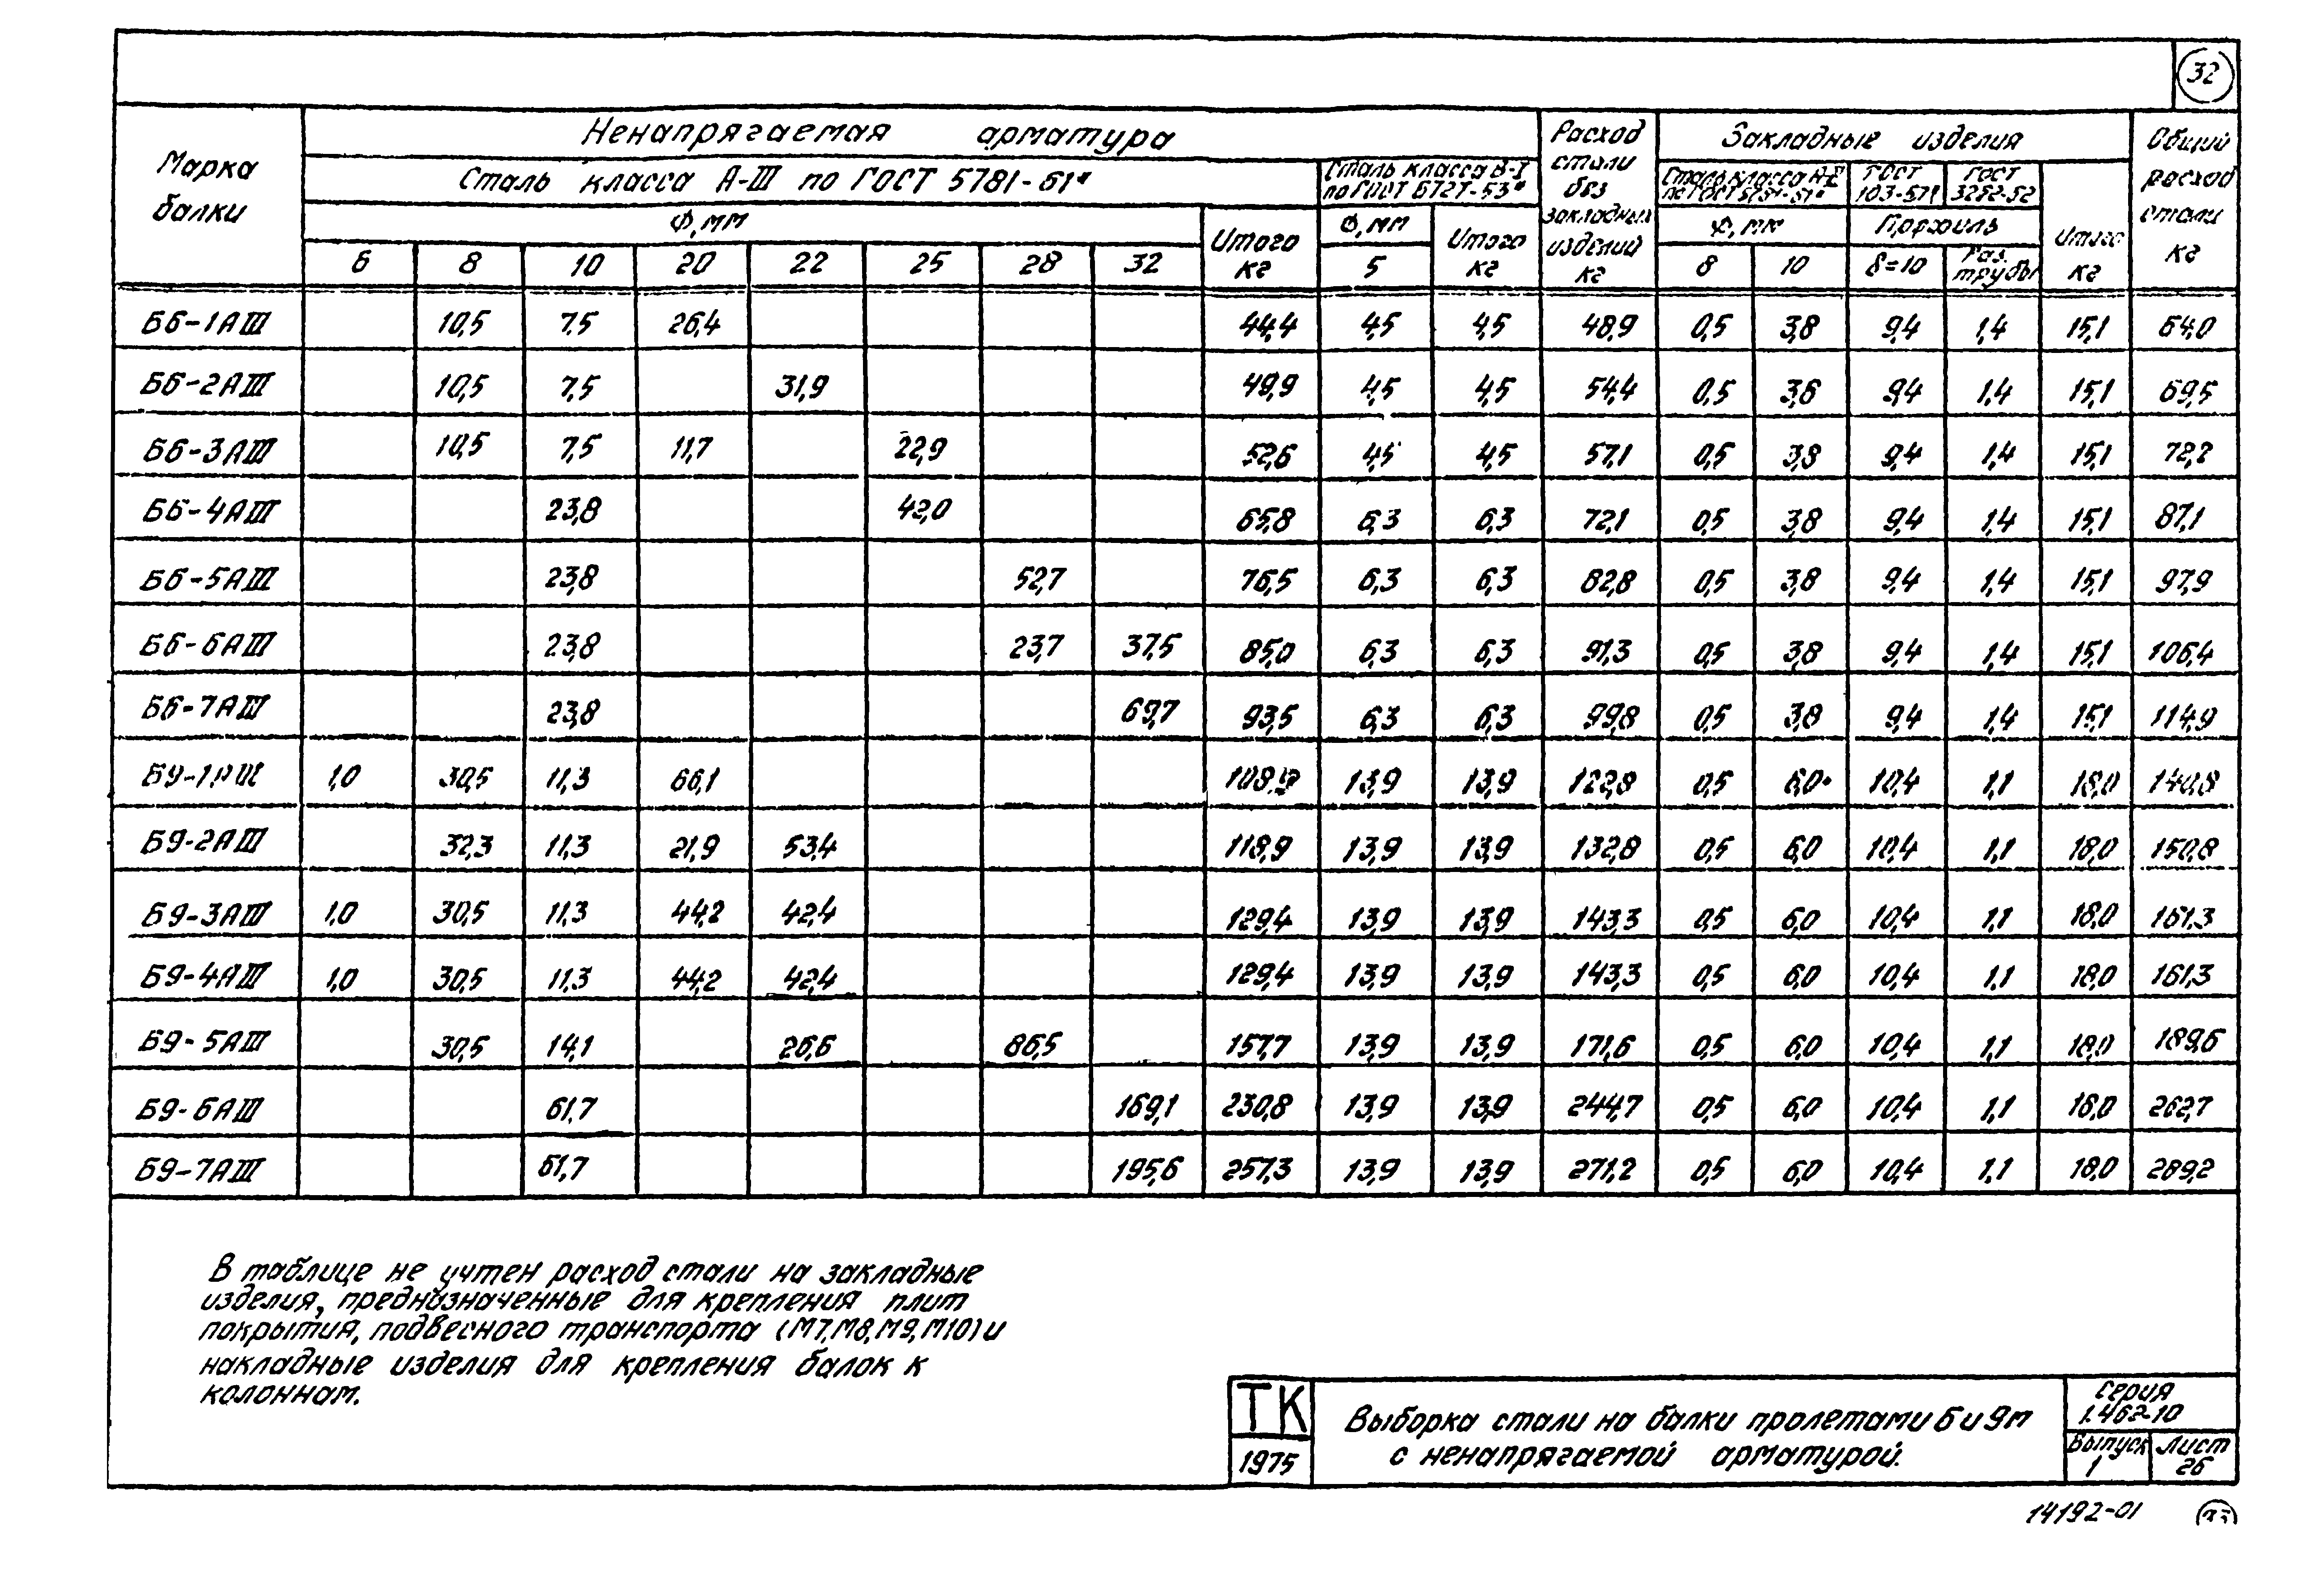 32
Марка балки
Ненапрягаемая арматура
Сталь класса А-III по ГОСТ 5781-61*
Ф, мм
6 8 10 20 22 25 28 32
Итого кг
Сталь класса В-I по ГОСТ 6727-53*
Ф, мм
5
Итого кг
Расход стали без закладных изделий кг
Закладные изделия
Сталь класса
Ф, мм
8 10
ГОСТ 103-57*
ГОСТ 3262-62
Профиль
δ=10
Газ. трубы
Итого кг
Общий расход стали кг
Б6-1АIII 10,5 7,5 26,4 44,4 4,5 4,5 48,9 0,5 3,8 9,4 1,4 15,1 64,0
Б6-2АIII 10,5 7,5 31,9 49,9 4,5 4,5 54,4 0,5 3,8 9,4 1,4 15,1 69,5
Б6-3АIII 10,5 7,5 11,7 22,9 52,6 4,5 4,5 57,1 0,5 3,8 9,4 1,4 15,1 72,2
Б6-4АIII 23,8 42,0 65,8 6,3 6,3 72,1 0,5 3,8 9,4 1,4 15,1 87,1
Б6-5АIII 23,8 52,7 76,5 6,3 6,3 82,8 0,5 3,8 9,4 1,4 15,1 97,9
Б6-6АIII 23,8 23,7 37,5 85,0 6,3 6,3 91,3 0,5 3,8 9,4 1,4 15,1 106,4
Б6-7АIII 23,8 69,7 93,5 6,3 6,3 99,8 0,5 3,8 9,4 1,4 15,1 114,9
Б9-1АIII 1,0 30,5 11,3 66,1 108,9 13,9 13,9 122,8 0,5 6,0 10,4 1,1 18,0 140,8
Б9-2АIII 32,3 11,3 21,9 53,4 118,9 13,9 13,9 132,8 0,5 6,0 10,4 1,1 18,0 150,8
Б9-3АIII 1,0 30,5 11,3 44,2 42,4 129,4 13,9 13,9 143,3 0,5 6,0 10,4 1,1 18,0 161,3
Б9-4АIII 1,0 30,5 11,3 44,2 42,4 129,4 13,9 13,9 143,3 0,5 6,0 10,4 1,1 18,0 161,3
Б9-5АIII 30,5 14,1 26,6 86,5 157,7 13,9 13,9 171,6 0,5 6,0 10,4 1,1 18,0 189,6
Б9-6АIII 61,7 169,1 230,8 13,9 13,9 244,7 0,5 6,0 10,4 1,1 18,0 262,7
Б9-7АIII 61,7 195,6 257,3 13,9 13,9 271,2 0,5 6,0 10,4 1,1 18,0 289,2
В таблице не учтен расход стали на закладные
изделия, предназначенные для крепления плит
покрытия, подвесного транспорта (М7, М8, М9, М10) и
накладные изделия для крепления балок к
колоннам.
ТК
1975
Выборка стали на балки пролетами 6 и 9м
с ненапрягаемой арматурой.
Серия
1.462-10
Выпуск 1
Лист 26
14192-01